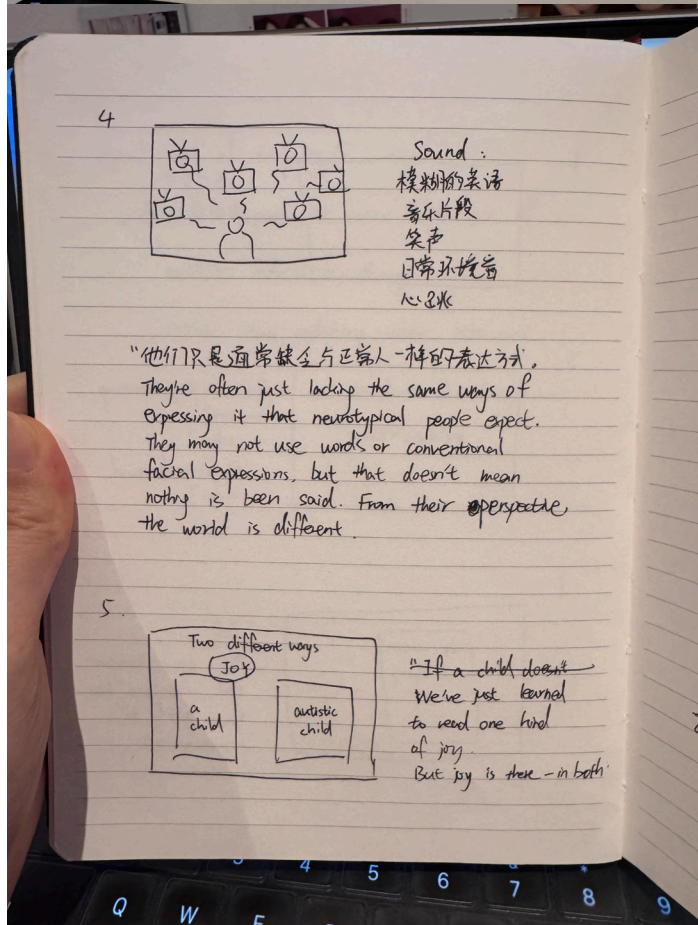 4
Sound :
模糊的英语
音乐片段
笑声
日常环境音
心跳
"他们只是通常缺乏与正常人一样的表达方式。
They're often just lacking the same ways of
expressing it that neurotypical people expect.
They may not use words or conventional
facial expressions, but that doesn't mean
nothng is been said. From their perspective,
the world is different.
5.
Two different ways
JOY
a
child
autistic
child
"If a child doesn't
We've just learned
to read one kind
of joy.
But joy is there – in both.
3 4 5 6 7 8 9
Q W E